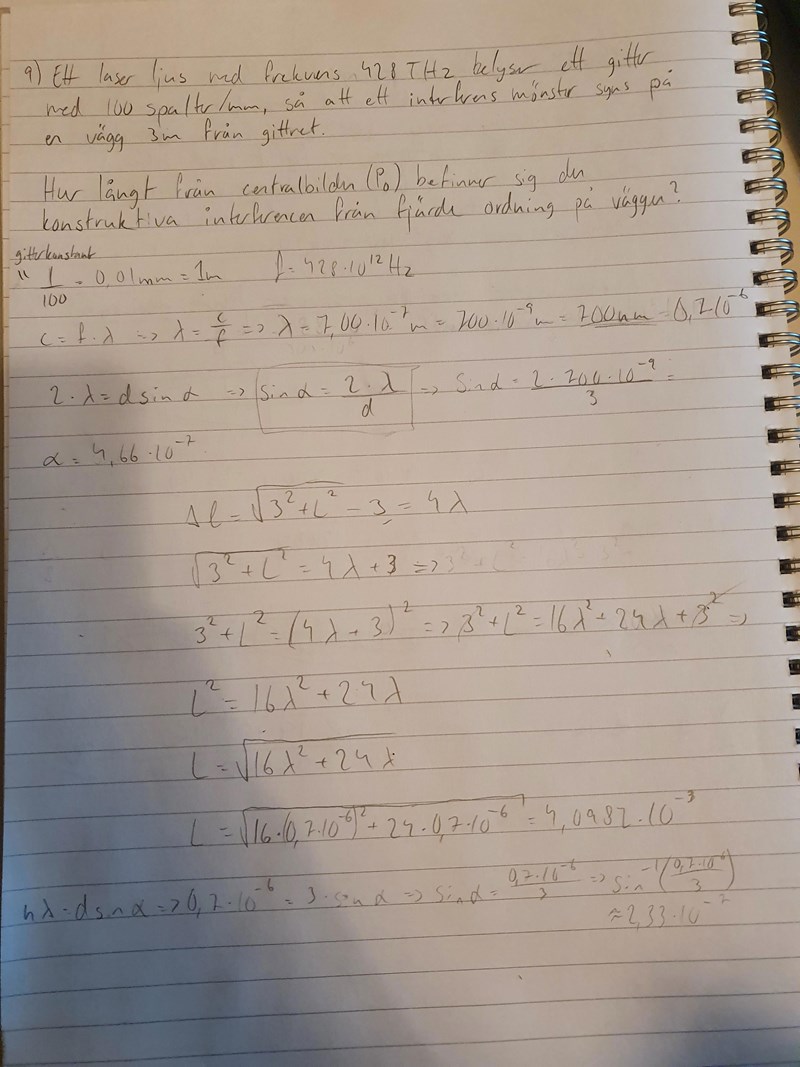 9) Ett laser ljus med frekvens 428 THz belyser ett gitter
med 100 spalter/mm, så att ett interferens mönster syns på
en vägg 3m från gittret.
Hur långt från centralbilden (P₀) befinner sig den
konstruktiva interferencen från fjärde ordning på väggen?
gitterkonstant
" 1/100 = 0,01mm = 1m f = 428·10¹² Hz
c = f·λ => λ = c/f => λ = 7,00·10⁻⁷ m = 700·10⁻⁹ m = 700nm = 0,7·10⁻⁶
2·λ = d sin α => sin α = 2·λ/d => sin α = 2·700·10⁻⁹/3 =
α = 4,66·10⁻⁷
Δl = √(3² + L²) - 3 = 4λ
√(3² + L²) = 4λ + 3 =>
3² + L² = (4λ + 3)² => 3² + L² = 16λ² + 24λ + 3² =>
L² = 16λ² + 24λ
L = √(16λ² + 24λ)
L = √(16·(0,7·10⁻⁶)² + 24·0,7·10⁻⁶) = 4,0982·10⁻³
nλ = d sin α => 0,7·10⁻⁶ = 3·sin α => sin α = 0,7·10⁻⁶/3 => sin⁻¹(0,7·10⁻⁶/3)
≈ 2,33·10⁻⁷